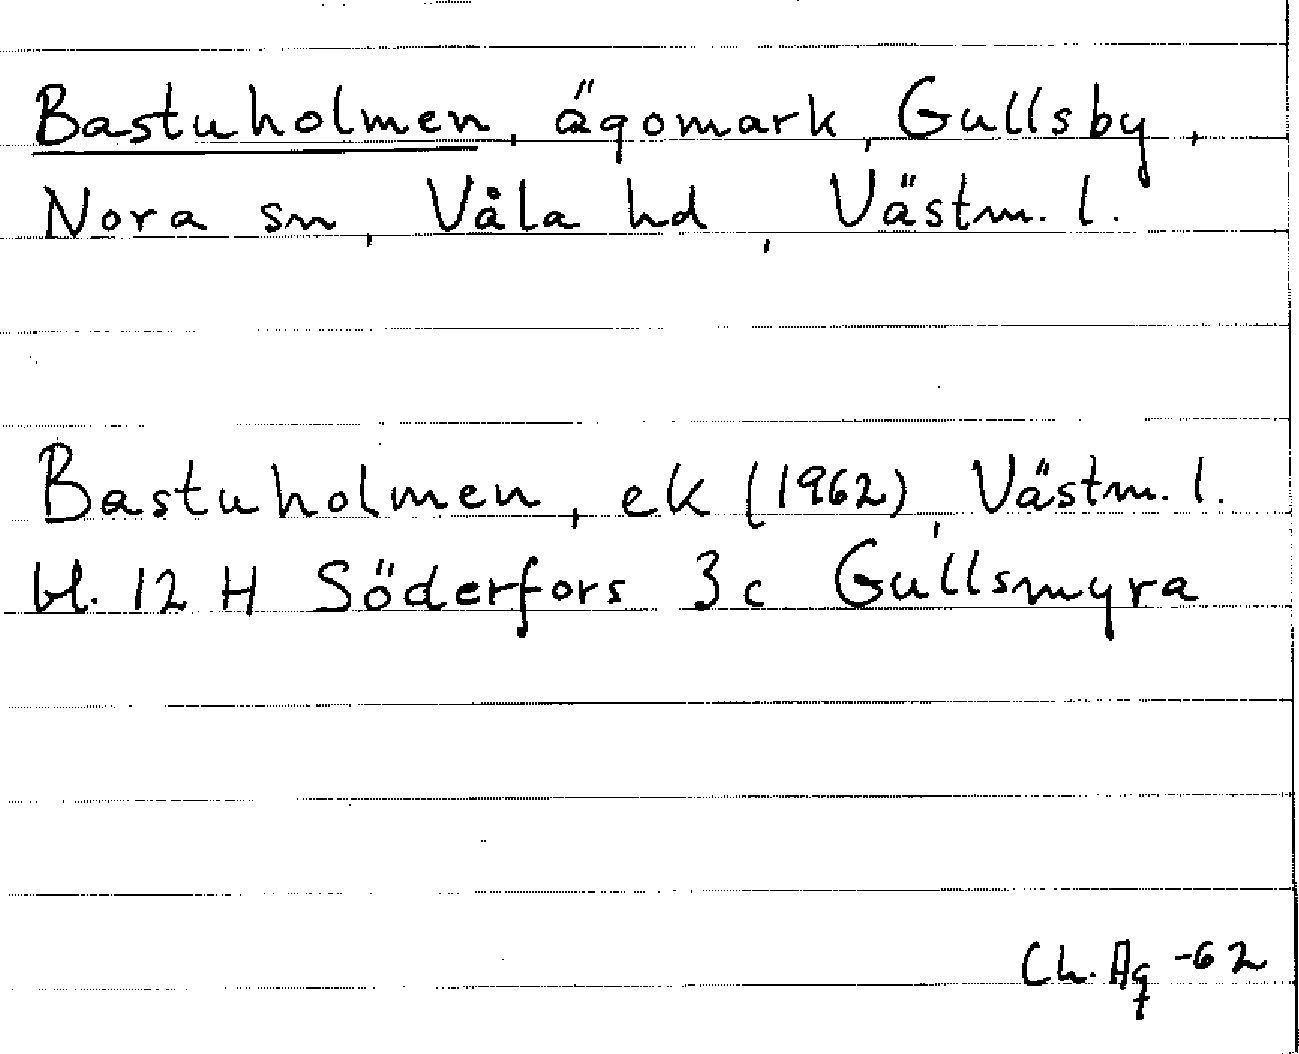 Bastuholmen, ägomark, Gullsby,
Nora sn, Våla hd, Västm. l.
Bastuholmen, ek (1962), Västm. l.
bl. 12 H Söderfors 3c Gullsmyra
Ch. Ag -62